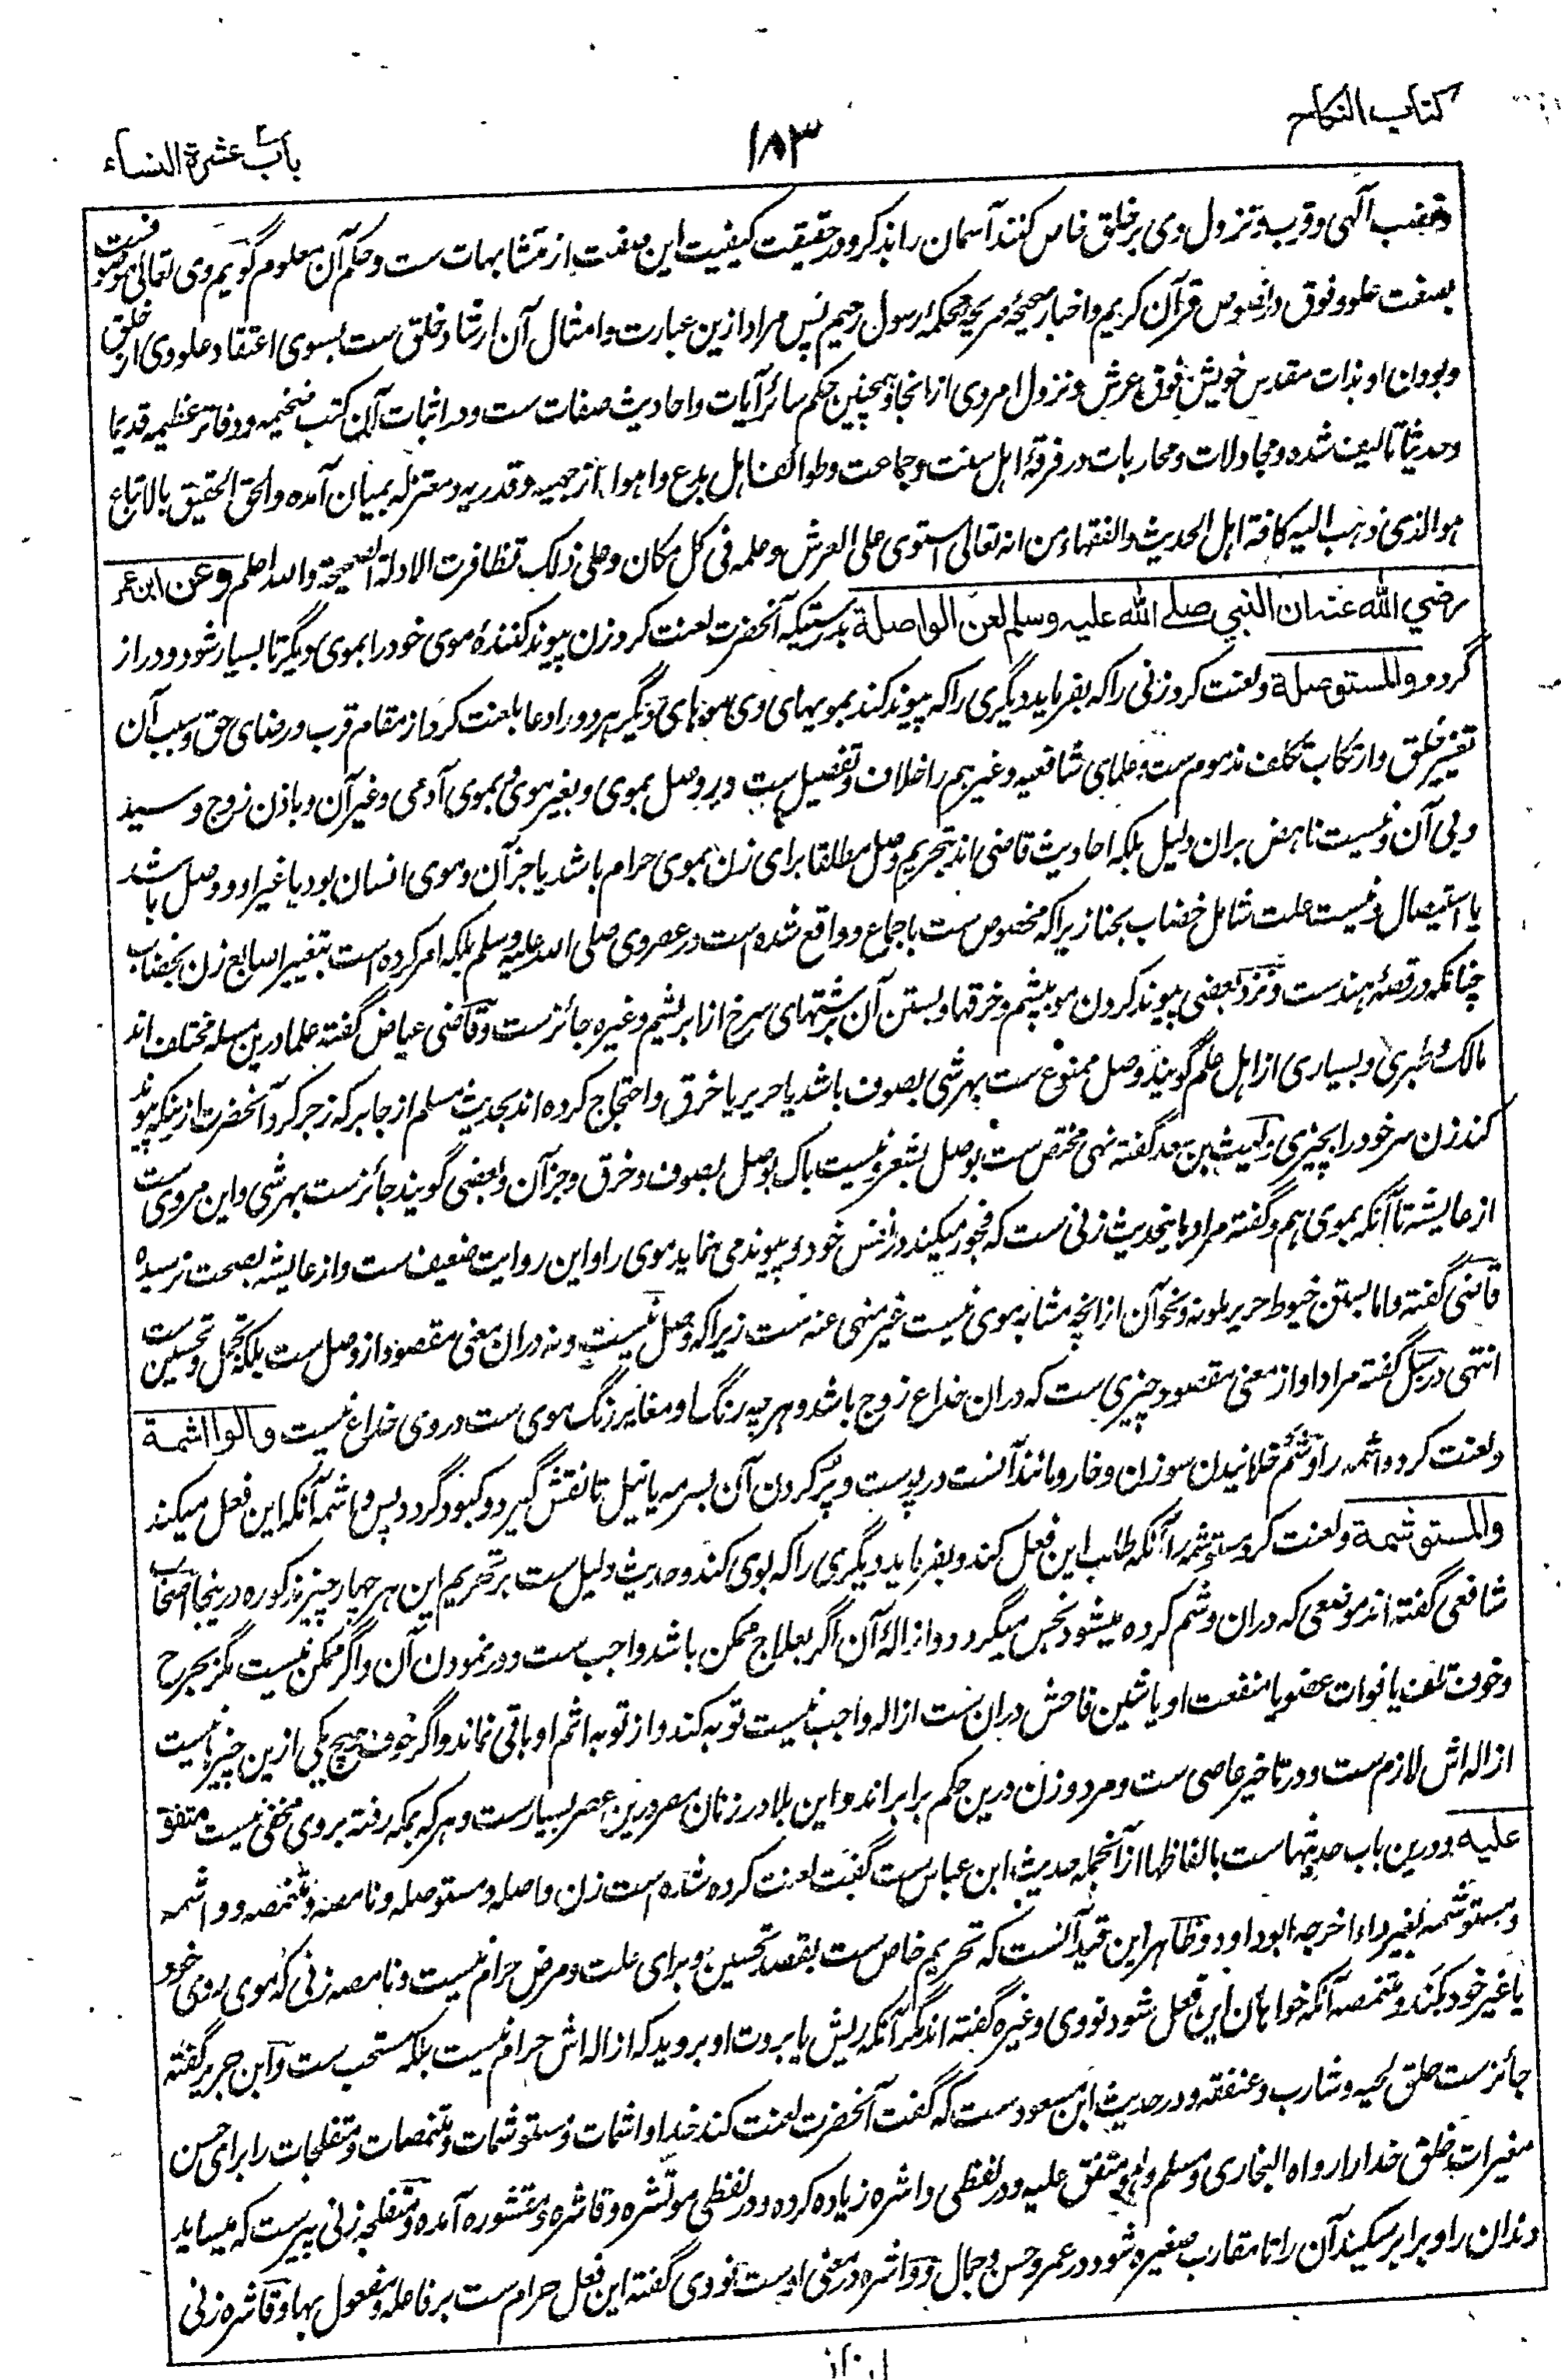 كتاب النكاح
١٨٣
باب عشرة النساء
وغضب آلهی و قرب و نزول وی بر خلق خاص کنند آسمان را بذکر و در حقیقت کیفیت این صفت از متشابهات ست و حکم آن معلوم گویم وی تعالی موصوفست
بصفت علو و فوق در نصوص قرآن کریم و اخبار صحیحهٔ صریحهٔ محکمهٔ رسول رحیم پس مراد ازین عبارت و امثال آن ارشاد خلق ست بسوی اعتقاد علو وی از خلق
و بودن او بذات مقدس خویش فوق عرش و نزول امر وی از انجا و همچنین حکم سائر آیات و احادیث صفات ست و در اثبات آن کتب ضخیمه و دفاتر عظیمه قدیما
و حدیثا تالیف شده و مجادلات و محاربات در فرقهٔ اهل سنت و جماعت و طوائف اهل بدع و اهوا از جهمیه و قدریه و معتزله بمیان آمده و الحق الحقیق بالاتباع
هو الذی ذهب الیه کافة اهل الحدیث و الفقهاء من انه تعالی استوی علی العرش و علمه فی کل مکان و علی ذلک تظافرت الادلة الصحیحة والله اعلم وعن ابن عمر
رضي الله عنه ان النبي صلے الله عليه وسلم لعن الواصلة بدرستیکه آنحضرت لعنت کرد زن پیوند کنندهٔ موی خود را بموی دیگر تا بسیار شود و دراز
گردد والمستوصلة و لعنت کرد زنی را که بفرماید دیگری را که پیوند کند بمویهای وی موهای دیگر هر دو را دعا بلعنت کرد از مقام قرب و رضای حق و سبب آن
تغییر خلق و ارتکاب تکلف مذموم ست و علمای شافعیه و غیرهم را خلاف و تفصیل ست در وصل بموی و بغیر موی و بموی آدمی و غیر آن و باذن زوج و سید
و بی آن و نیست ناهض بران دلیل بلکه احادیث قاضی اند بتحریم وصل مطلقا برای زن بموی حرام باشد یا جز آن و موی انسان بود یا غیر او و وصل باشد
یا استیصال و نیست علت شامل خضاب بحنا زیرا که مخصوص ست باجماع و واقع شده است در عصر وی صلی الله علیه وسلم بلکه امر کرده است بتغییر اصابع زن بخضاب
چنانکه در قصهٔ هند ست و نزد بعضی پیوند کردن مو بپشم و خرقها و بستن آن برشتهای سرخ از ابریشم و غیره جائز ست و قاضی عیاض گفته علما درین مسله مختلف اند
مالک و طبری و بسیاری از اهل علم گویند وصل ممنوع ست بهر شی بصوف باشد یا حریر یا خرق و احتجاج کرده اند بحدیث مسلم از جابر که زجر کرد آنحضرت ازینکه پیوند
کند زن سر خود را بچیزی و لیث بن سعد گفته نهی مختص ست بوصل بشعر و نیست باک بوصل بصوف و خرق و جز آن و بعضی گویند جائز ست بهر شی و این مروی ست
از عایشه تا آنکه بموی هم و گفته مراد باینحدیث زنی ست که فجور میکند در نفس خود و پیوند می نماید موی را و این روایت ضعیف ست و از عایشه بصحت نرسیده
قاضی گفته و اما بستن خیوط حریر ملونه و نحو آن از انچه مشابه موی نیست غیر منهی عنه ست زیرا که وصل نیست و نه دران معنی مقصود از وصل ست بلکه تجمل و تحسین ست
انتهی در سبل گفته مراد او از معنی مقصود چیزی ست که دران خداع زوج باشد و هر چه رنگ او مغایر رنگ موی ست در وی خداع نیست والواشمة
و لعنت کرد واشمه را و وشم خلانیدن سوزن و خار و مانند آنست در پوست و پر کردن آن بسرمه یا نیل تا نقش گیرد و کبود گردد پس واشمه آنکه این فعل میکند
والمستوشمة و لعنت کرد مستوشمه را آنکه طلب این فعل کند و بفرماید دیگری را که بوی کند و حدیث دلیل ست بر تحریم این هر چهار چیز مذکوره در ینجا اصحاب
شافعی گفته اند موضعی که دران وشم کرده میشود نجس میگردد و ازالهٔ آن اگر بعلاج ممکن باشد واجب ست دور نمودن آن و اگر ممکن نیست مگر بجرح
و خوف تلف یا فوات عضو یا منفعت او یا شین فاحش دران ست ازاله واجب نیست توبه کند و از توبه اثم او باقی نماند و اگر خوف هیچ یکی ازین چیزها نیست
ازاله اش لازم ست و در تاخیر عاصی ست و مرد و زن درین حکم برابر اند و این بلا در زنان مصر درین عصر بسیار ست و هر که بمکه رفته بر وی مخفی نیست متفق
عليه و درین باب حدیثها ست بالفاظها از آنجمله حدیث ابن عباس ست گفت لعنت کرده شده است زن واصله و مستوصله و نامصه و متنمصه و واشمه
و مستوشمه بغیر داء اخرجه ابوداود و ظاهر این قید آنست که تحریم خاص ست بقصد تحسین و برای علت و مرض حرام نیست و نامصه زنی که موی روی خود
یا غیر خود بکند و متنمصه آنکه خواهان این فعل شود نووی و غیره گفته اند مگر آنکه ریش یا بروت او بروید که ازاله اش حرام نیست بلکه مستحب ست و ابن جریر گفته
جائز ست حلق لحیه و شارب و عنفقه و در حدیث ابن مسعود ست که گفت آنحضرت لعنت کند خدا واشمات و مستوشمات و متنمصات و متفلجات را برای حسن
مغیرات خلق خدا را رواه البخاری و مسلم و هو متفق علیه و در لفظی واشره زیاده کرده و در لفظی موتشره و قاشره و مقشوره آمده و متفلجه زنی پیر ست که میساید
دندان را و برابر میکند آن را تا مقارب صغیره شود در عمر و حسن و جمال و واشره در معنی اوست نووی گفته این فعل حرام ست بر فاعله و مفعول بها و قاشره زنی